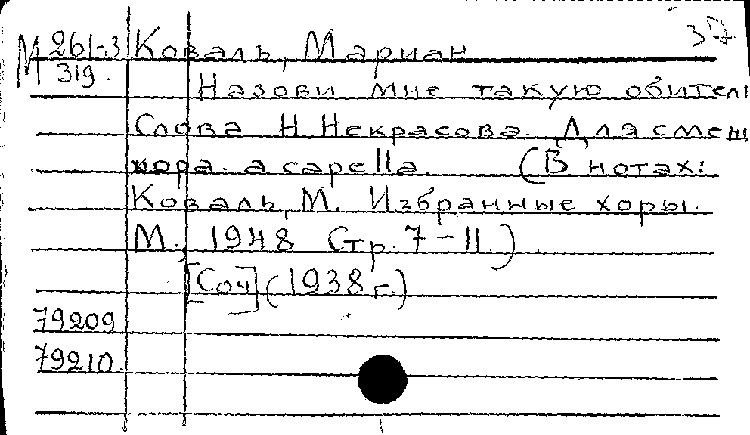 М 261-3 Коваль, Мариан 37
319.
Назови мне такую обитель
Слова Н. Некрасова. Для смеш
хора a capella. (В нотах:
Коваль, М. Избранные хоры.
М., 1948 Стр. 7-11.)
[Соч] (1938 г.)
79209
79210.